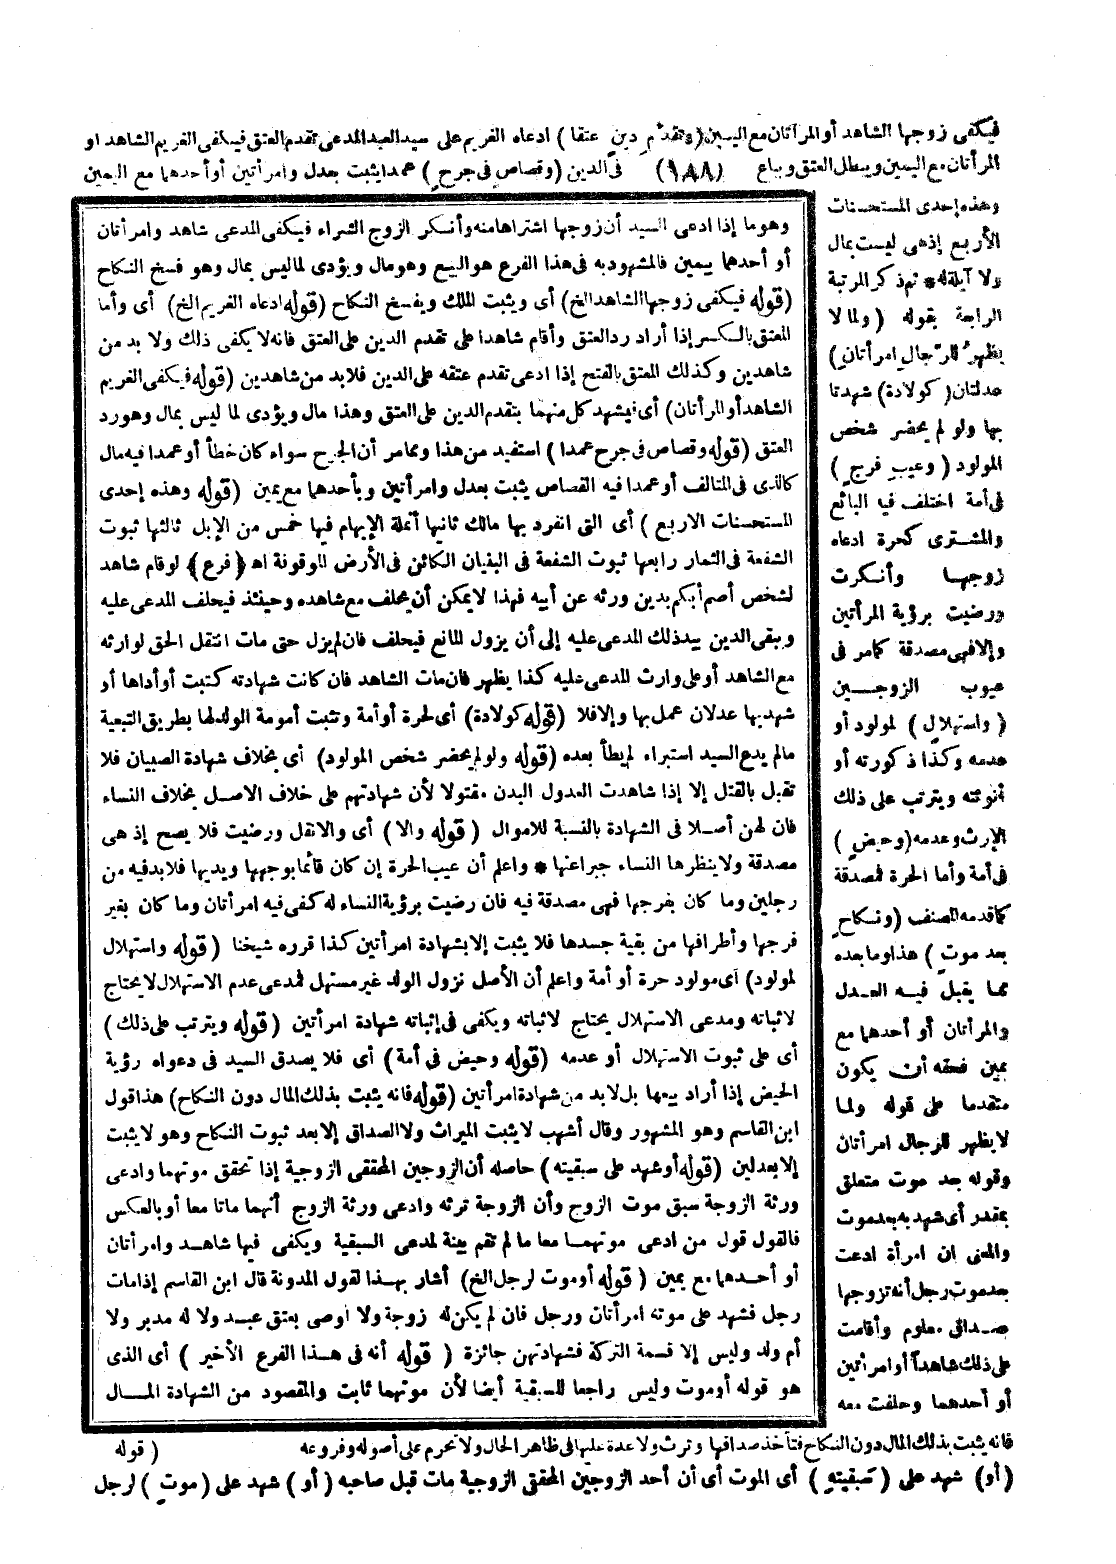 فيكفى زوجها الشاهد أو المرأتان مع اليمين (وتقدم دين عتقا) ادعاه الغريم على سيد العبد المدعى تقدم العتق فيكفى الغريم الشاهد او
المرأتان مع اليمين ويبطل العتق ويباع (١٨٨) فى الدين (وقصاص فى جرح) عمدا يثبت بعدل وامرأتين أو أحدهما مع اليمين
وهذه إحدى المستحسنات
الأربع إذ هى ليست بمال
ولا آيلة له * ثم ذكر المرتبة
الرابعة بقوله (ولما لا
يظهر للرجال امرأتان)
عدلتان (كولادة) شهدتا
بها ولو لم يحضر شخص
المولود (وعيب فرج)
فى أمة اختلف فيه البائع
والمشترى كحرة ادعاه
زوجها وأنكرت
ورضيت برؤية المرأتين
وإلا فهى مصدقة كما مر فى
عيوب الزوجين
(واستهلال) لمولود أو
عدمه وكذا ذكورته أو
أنوثته ويترتب على ذلك
الإرث وعدمه (وحيض)
فى أمة وأما الحرة فمصدقة
كما قدمه المصنف (ونكاح
بعد موت) هذا وما بعده
مما يقبل فيه العدل
والمرأتان أو أحدهما مع
يمين فحقه أن يكون
متقدما على قوله ولما
لا يظهر للرجال امرأتان
وقوله بعد موت متعلق
بمقدر أى شهد به بعد موت
والمعنى ان امرأة ادعت
بعد موت رجل أنه تزوجها
بصداق معلوم وأقامت
على ذلك شاهدا أو امرأتين
أو أحدهما وحلفت معه
وهو ما إذا ادعى السيد أن زوجها اشتراها منه وأنكر الزوج الشراء فيكفى المدعى شاهد وامرأتان
أو أحدهما بيمين فالمشهود به فى هذا الفرع هو البيع وهو مال ويؤدى لما ليس بمال وهو فسخ النكاح
(قوله فيكفى زوجها الشاهد الخ) أى ويثبت الملك ويفسخ النكاح (قوله ادعاه الغريم الخ) أى وأما
المعتق بالكسر إذا أراد رد العتق وأقام شاهدا على تقدم الدين على العتق فانه لا يكفى ذلك ولا بد من
شاهدين وكذلك المعتق بالفتح إذا ادعى تقدم عتقه على الدين فلا بد من شاهدين (قوله فيكفى الغريم
الشاهد أو المرأتان) أى فيشهد كل منهما بتقدم الدين على العتق وهذا مال ويؤدى لما ليس بمال وهو رد
العتق (قوله وقصاص فى جرح عمدا) استفيد من هذا ومما مر أن الجرح سواء كان خطأ أو عمدا فيه مال
كالذى فى المتالف أو عمدا فيه القصاص يثبت بعدل وامرأتين وبأحدهما مع يمين (قوله وهذه إحدى
المستحسنات الاربع) أى التى انفرد بها مالك ثانيها أنملة الإبهام فيها خمس من الإبل ثالثها ثبوت
الشفعة فى الثمار رابعها ثبوت الشفعة فى البنيان الكائن فى الأرض الموقوفة اهـ (فرع) لو قام شاهد
لشخص أصم أبكم بدين ورثه عن أبيه فهذا لا يمكن أن يحلف مع شاهده وحينئذ فيحلف المدعى عليه
ويبقى الدين بيد ذلك المدعى عليه إلى أن يزول المانع فيحلف فان لم يزل حتى مات انتقل الحق لوارثه
مع الشاهد أو على وارث المدعى عليه كذا يظهر فان مات الشاهد فان كانت شهادته كتبت أو أداها أو
شهد بها عدلان عمل بها وإلا فلا (قوله كولادة) أى لحرة أو أمة وتثبت أمومة الولد لها بطريق التبعية
ما لم يدع السيد استبراء لم يطأ بعده (قوله ولو لم يحضر شخص المولود) أى بخلاف شهادة الصبيان فلا
تقبل بالقتل إلا إذا شاهدت العدول البدن مقتولا لأن شهادتهم على خلاف الاصل بخلاف النساء
فان لهن أصلا فى الشهادة بالنسبة للاموال (قوله والا) أى والانقل ورضيت فلا يصح إذ هى
مصدقة ولا ينظرها النساء جبرا عنها * واعلم أن عيب الحرة إن كان قائما بوجهها ويديها فلا بد فيه من
رجلين وما كان بفرجها فهى مصدقة فيه فان رضيت برؤية النساء له كفى فيه امرأتان وما كان بغير
فرجها وأطرافها من بقية جسدها فلا يثبت إلا بشهادة امرأتين كذا قرره شيخنا (قوله واستهلال
لمولود) أى مولود حرة أو أمة واعلم أن الأصل نزول الولد غير مستهل فمدعى عدم الاستهلال لا يحتاج
لاثباته ومدعى الاستهلال يحتاج لاثباته ويكفى فى إثباته شهادة امرأتين (قوله ويترتب على ذلك)
أى على ثبوت الاستهلال أو عدمه (قوله وحيض فى أمة) أى فلا يصدق السيد فى دعواه رؤية
الحيض إذا أراد بيعها بل لا بد من شهادة امرأتين (قوله فانه يثبت بذلك المال دون النكاح) هذا قول
ابن القاسم وهو المشهور وقال أشهب لا يثبت الميراث ولا الصداق إلا بعد ثبوت النكاح وهو لا يثبت
إلا بعدلين (قوله أو شهد على سبقيته) حاصله أن الزوجين المحققى الزوجية إذا تحقق موتهما وادعى
ورثة الزوجة سبق موت الزوج وأن الزوجة ترثه وادعى ورثة الزوج أنهما ماتا معا أو بالعكس
فالقول قول من ادعى موتهما معا ما لم تقم بينة لمدعى السبقية ويكفى فيها شاهد وامرأتان
أو أحدهما مع يمين (قوله أو موت لرجل الخ) أشار بهذا لقول المدونة قال ابن القاسم إذا مات
رجل فشهد على موته امرأتان ورجل فان لم يكن له زوجة ولا أوصى بعتق عبد ولا له مدبر ولا
أم ولد وليس إلا قسمة التركة فشهادتهن جائزة (قوله أنه فى هذا الفرع الأخير) أى الذى
هو قوله أو موت وليس راجعا للسبقية أيضا لأن موتهما ثابت والمقصود من الشهادة المال
فانه يثبت بذلك المال دون النكاح فتأخذ صداقها وترث ولا عدة عليها فى ظاهر الحال ولا تحرم على أصوله وفروعه (قوله
(أو) شهد على (سبقيته) أى الموت أى أن أحد الزوجين المحققى الزوجية مات قبل صاحبه (أو) شهد على (موت) لرجل